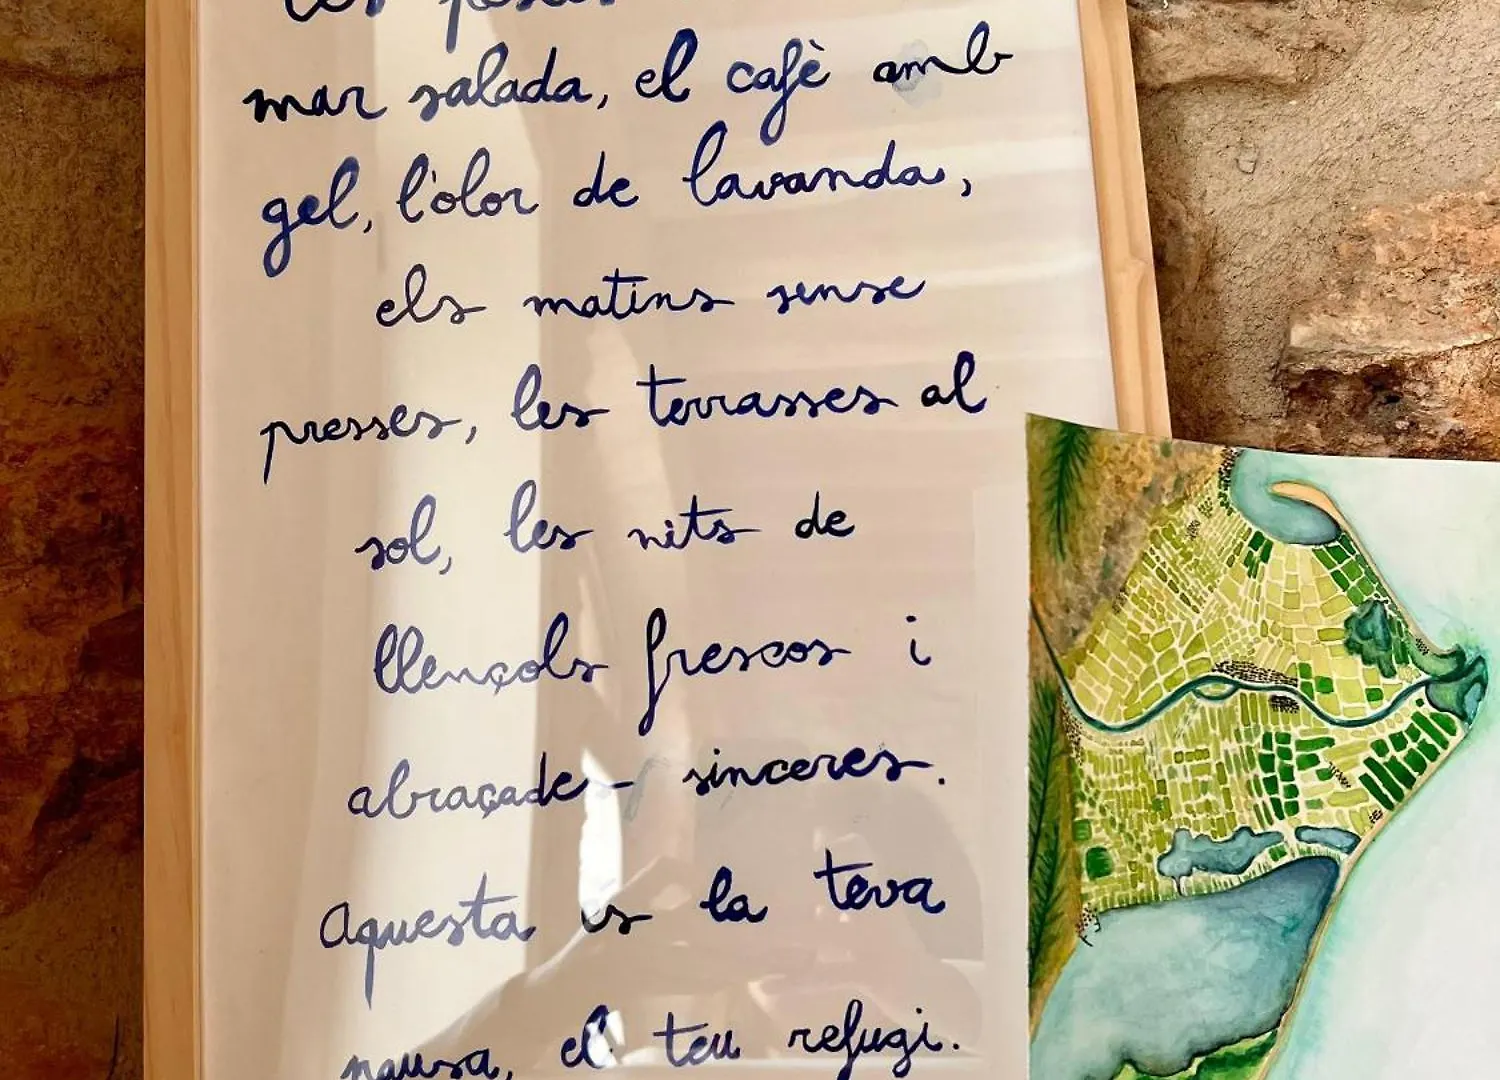 mar salada, el cafè amb
gel, l'olor de lavanda,
els matins sense
presses, les terrasses al
sol, les nits de
llençols frescos i
abraçades sinceres.
Aquesta és la teva
pausa, el teu refugi.